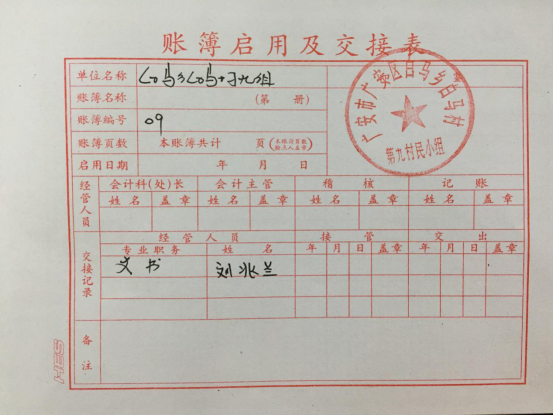 账簿启用及交接表
单位名称 白马乡白马村九组
账簿名称 (第 册)
账簿编号 09
账簿页数 本账簿共计 页
启用日期 年 月 日
广安市广安区白马乡白马村
第九村民小组
经管人员
会计科(处)长 会计主管 稽核 记账
姓名 盖章 姓名 盖章 姓名 盖章 姓名 盖章
交接记录
经管人员 接管 交出
专业职务 姓名 年 月 日 盖章 年 月 日 盖章
文书 刘兆兰
备注